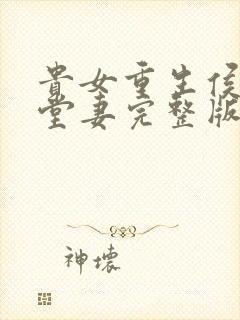 貴女重生侯
堂妻完整版
神壞